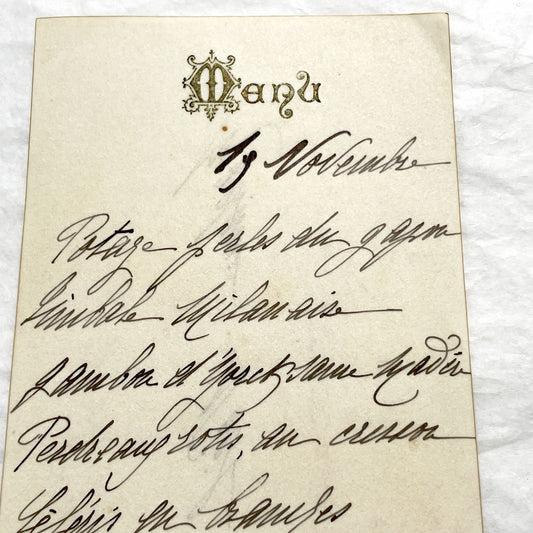 Menu
19 Novembre
Potage perles du Japon
Timbale Milanaise
Jambon d'York sauce Madère
Perdreaux rotis, au cresson
Céleris en branches